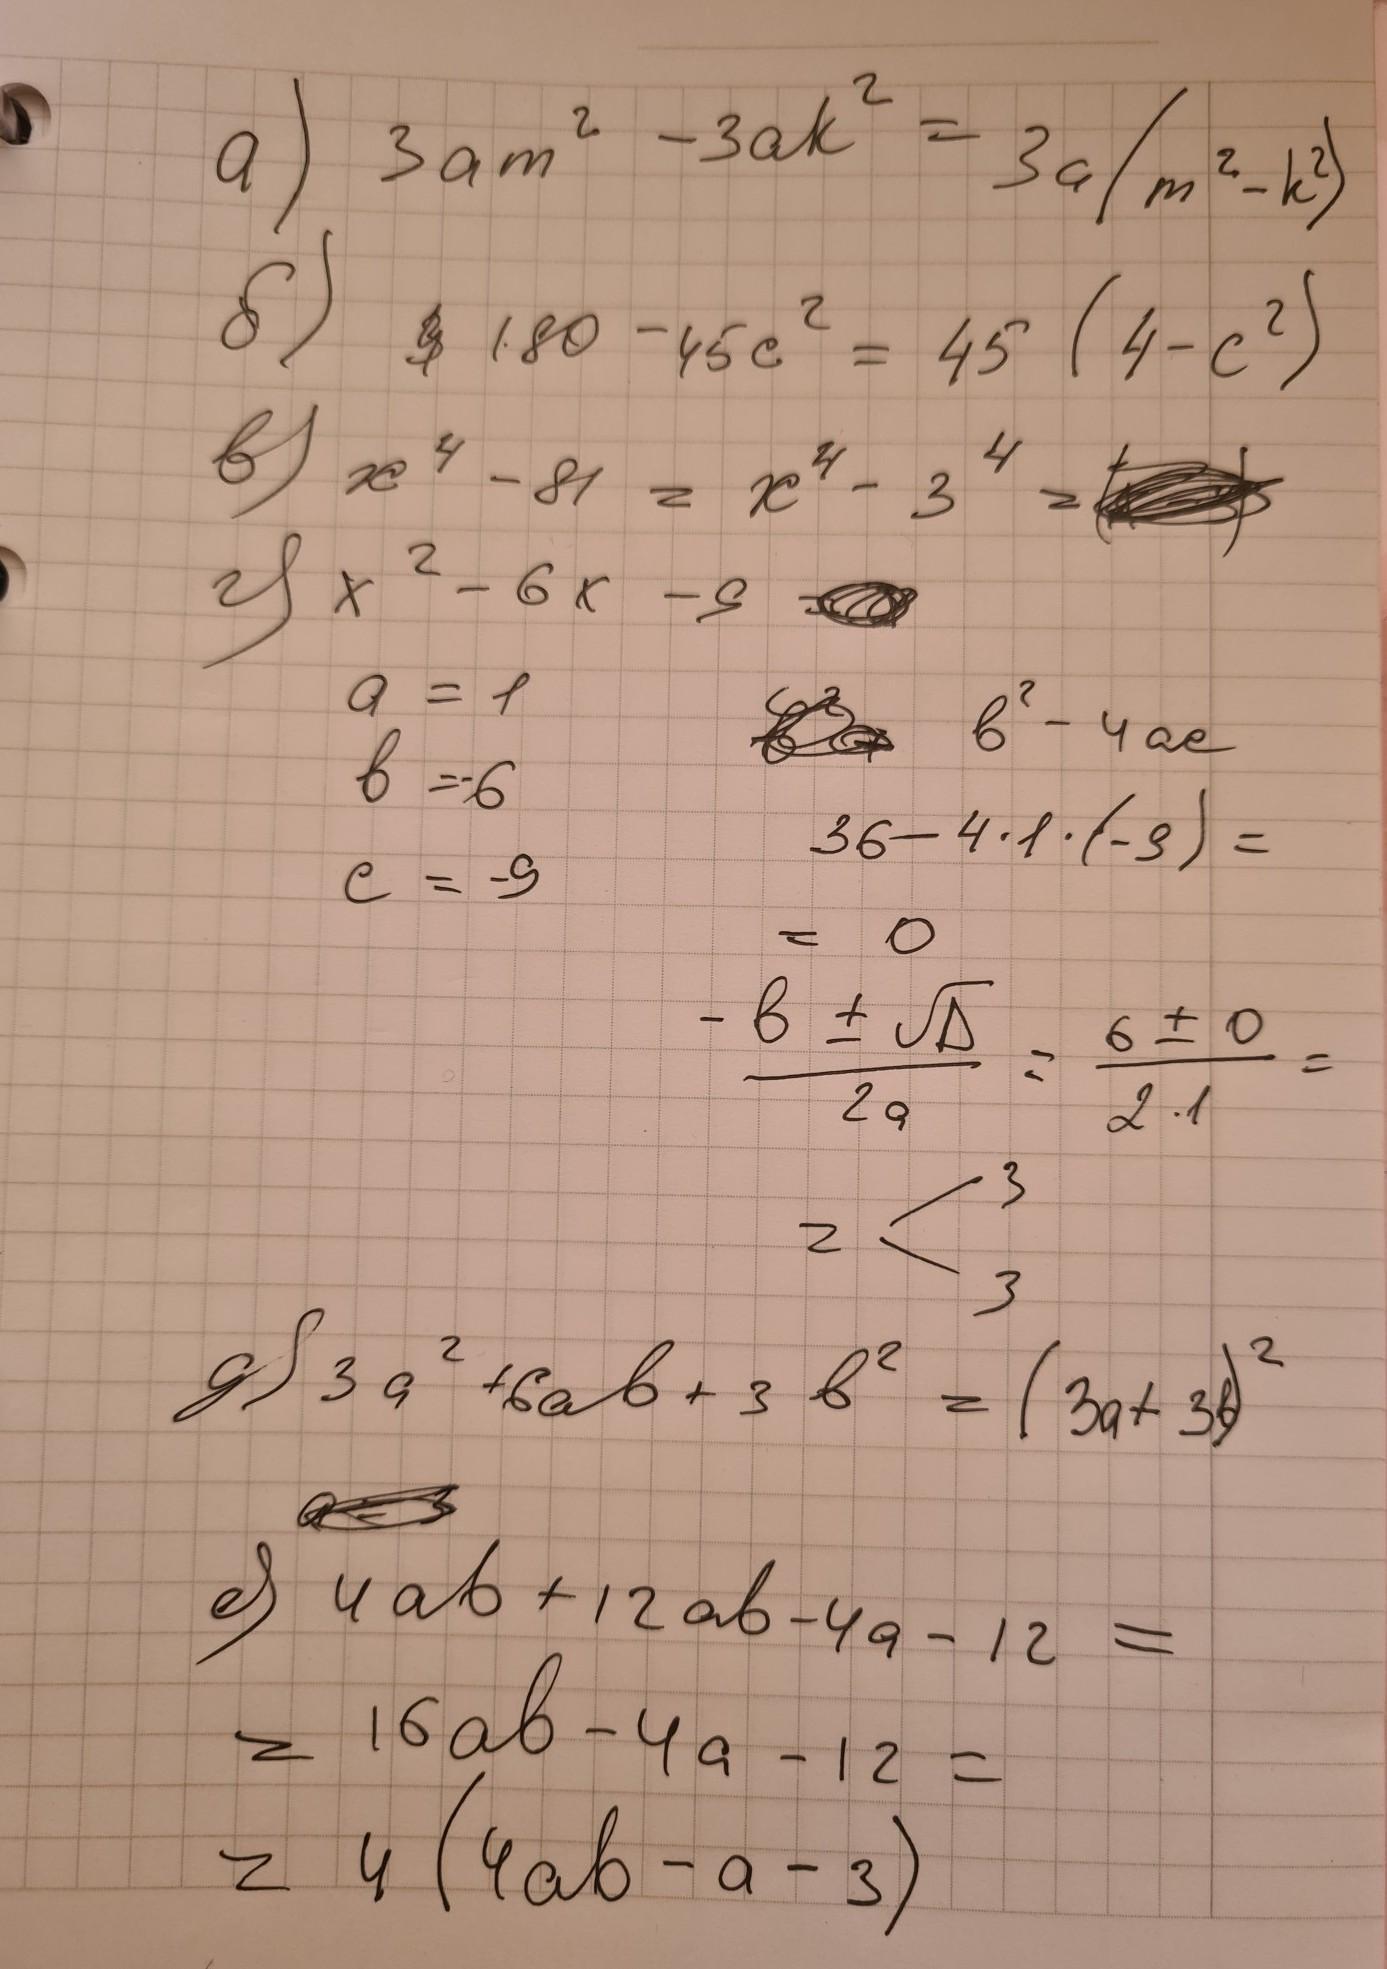 а) 3am² - 3ak² = 3a(m² - k²)
б) 180 - 45c² = 45 (4 - c²)
в) x⁴ - 81 = x⁴ - 3⁴ =
г) x² - 6x - 9
a = 1
b = -6
b² - 4ac
36 - 4·1·(-9) =
c = -9
= 0
(-b ± √D)/(2a) = (6 ± 0)/(2·1) =
= < 3
3
д) 3a² + 6ab + 3b² = (3a + 3b)²
е) 4ab + 12ab - 4a - 12 =
= 16ab - 4a - 12 =
= 4 (4ab - a - 3)